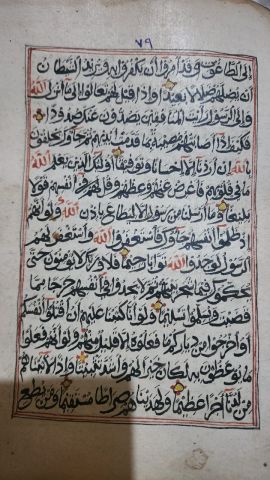 ٧٩
الى الطاغوت وقد امروا ان يكفروا به ويريد الشيطان
ان يضلهم ضلالا بعيدا واذا قيل لهم تعالوا الى ما انزل الله
والى الرسول رايت المنافقين يصدون عنك صدودا
فكيف اذا اصابتهم مصيبة بما قدمت ايديهم ثم جاؤك يحلفون
بالله ان اردنا الا احسانا وتوفيقا اولئك الذين يعلم الله
ما في قلوبهم فاعرض عنهم وعظهم وقل لهم في انفسهم قولا
بليغا وما ارسلنا من رسول الا ليطاع باذن الله ولو انهم
اذ ظلموا انفسهم جاؤك فاستغفروا الله واستغفر لهم
الرسول لوجدوا الله توابا رحيما فلا وربك لا يؤمنون حتى
يحكموك فيما شجر بينهم ثم لا يجدوا في انفسهم حرجا مما
قضيت ويسلموا تسليما ولو انا كتبنا عليهم ان اقتلوا انفسكم
او اخرجوا من دياركم ما فعلوه الا قليل منهم ولو انهم فعلوا
ما يوعظون به لكان خيرا لهم واشد تثبيتا واذا لاتيناهم
من لدنا اجرا عظيما ولهديناهم صراطا مستقيما ومن يطع